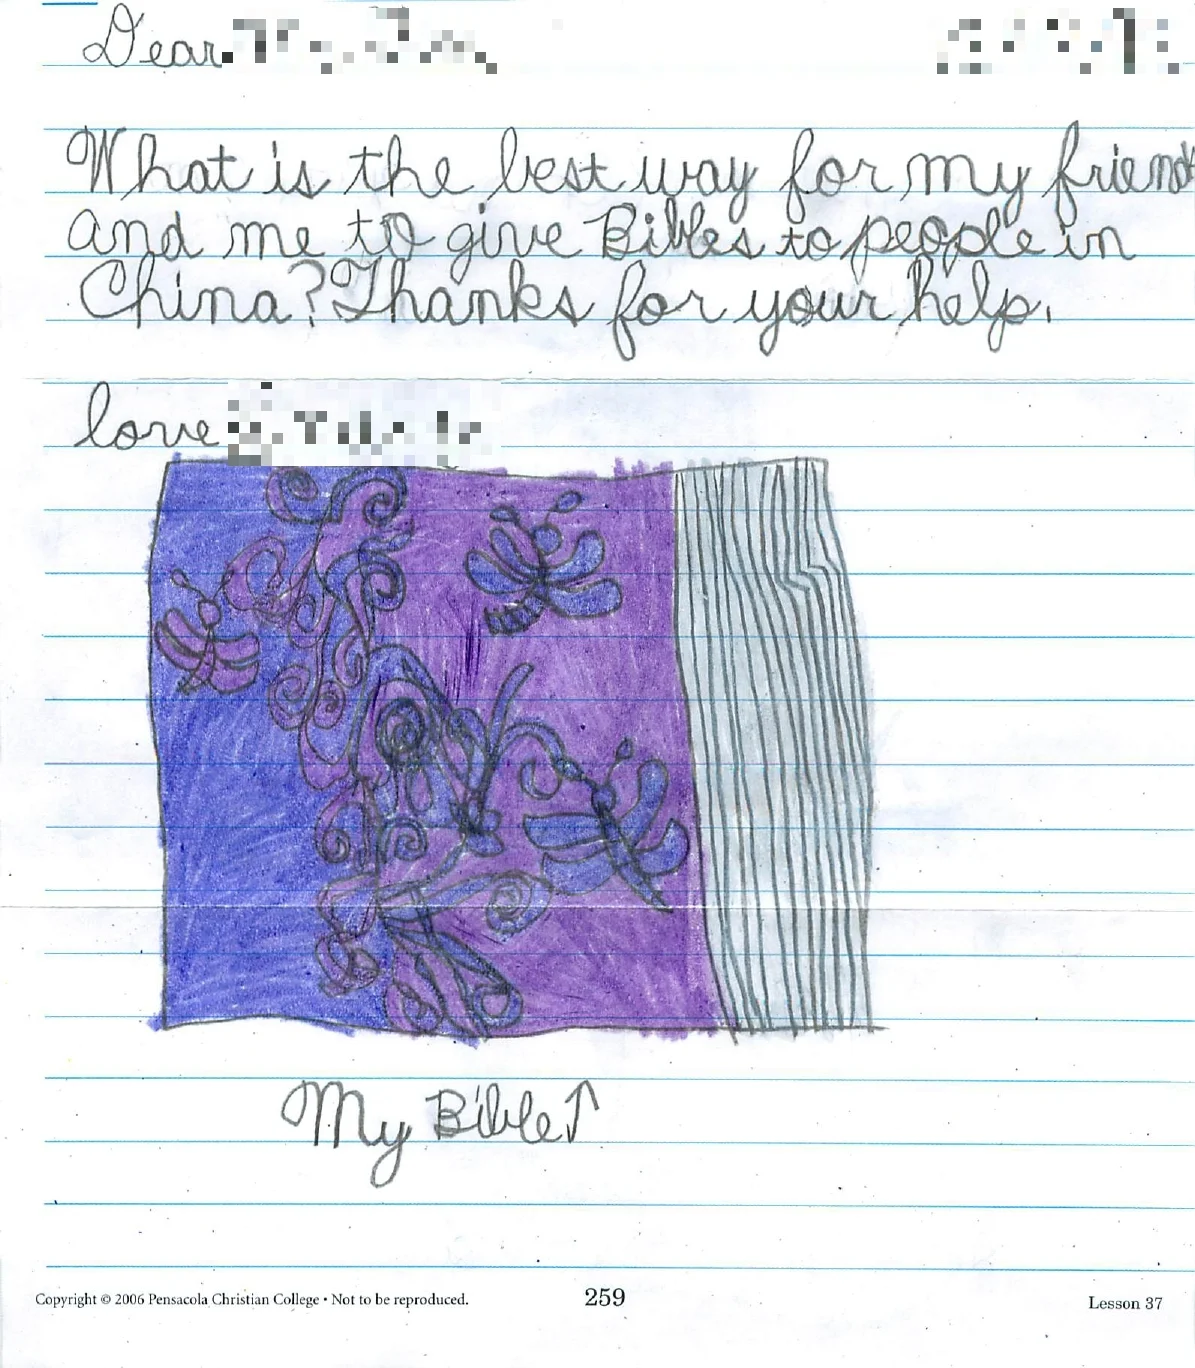 Dear
What is the best way for my friends
and me to give Bibles to people in
China? Thanks for your help.
love
My Bible↑
Copyright © 2006 Pensacola Christian College • Not to be reproduced.
259
Lesson 37